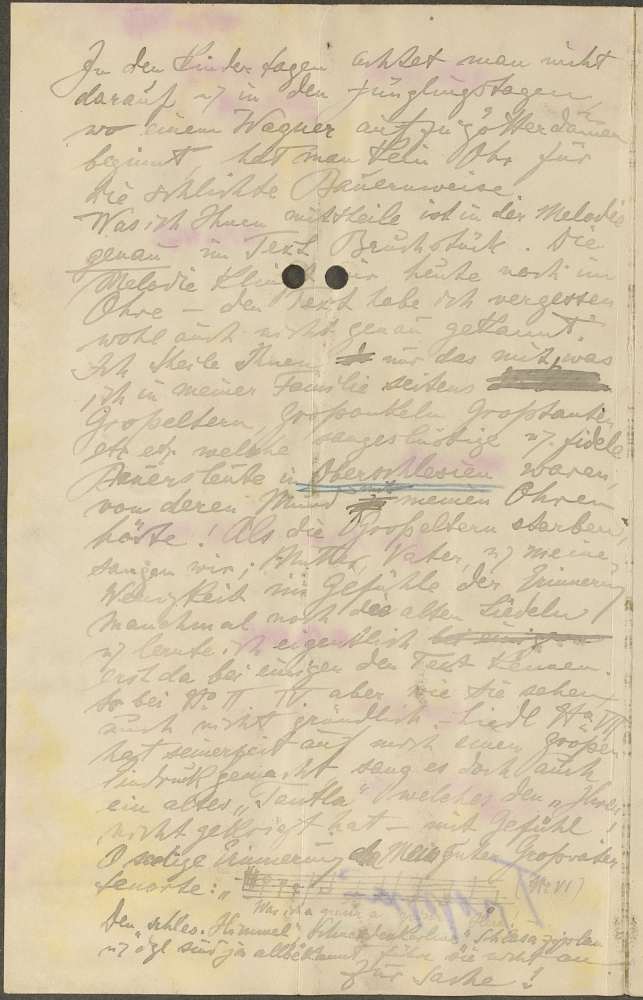 In den Kinder tagen achtet man nicht
darauf u in den Jünglingstagen
wo einem Wagner auf zu götterdämmern
beginnt, hat man kein Ohr für
die schlichte Bauernweise.
Was ich Ihnen mittheile ist in der Melodie
genau im Text Bruchstück. Die
Melodie klingt mir heute noch im
Ohre — den Text habe ich vergessen
wohl auch nicht genau gekannt.
Ich theile Ihnen nur das mit, was
ich in meiner Familie seitens
Großeltern, Großonkeln Großtanten
etc etc welche sangeslustige u. fidele
Bauersleute in Oberschlesien waren,
von deren Mund mit meinen Ohren
hörte! Als die Großeltern starben,
sangen wir, Mutter, Vater, u meine
Wenigkeit im Gefühle der Erinnerung
manchmal noch die alten Liedeln
u lernte ich eigentlich
erst da bei einigen den Text kennen.
So bei No II IV aber wie Sie sehen
auch nicht gründlich. — Liedl No III
hat seinerzeit auf mich einen großen
Eindruck gemacht sang es doch auch
ein altes „Tantla" welches den „Ihren"
nicht gekriegt hat — mit Gefühl!
O selige Erinnerung der meines guten Großvaters
tenorte: „ (No VI)
Was is a
Den „schles. Himmel"
u dgl sind ja allbekannt, führe sie nicht an
zur Sache!